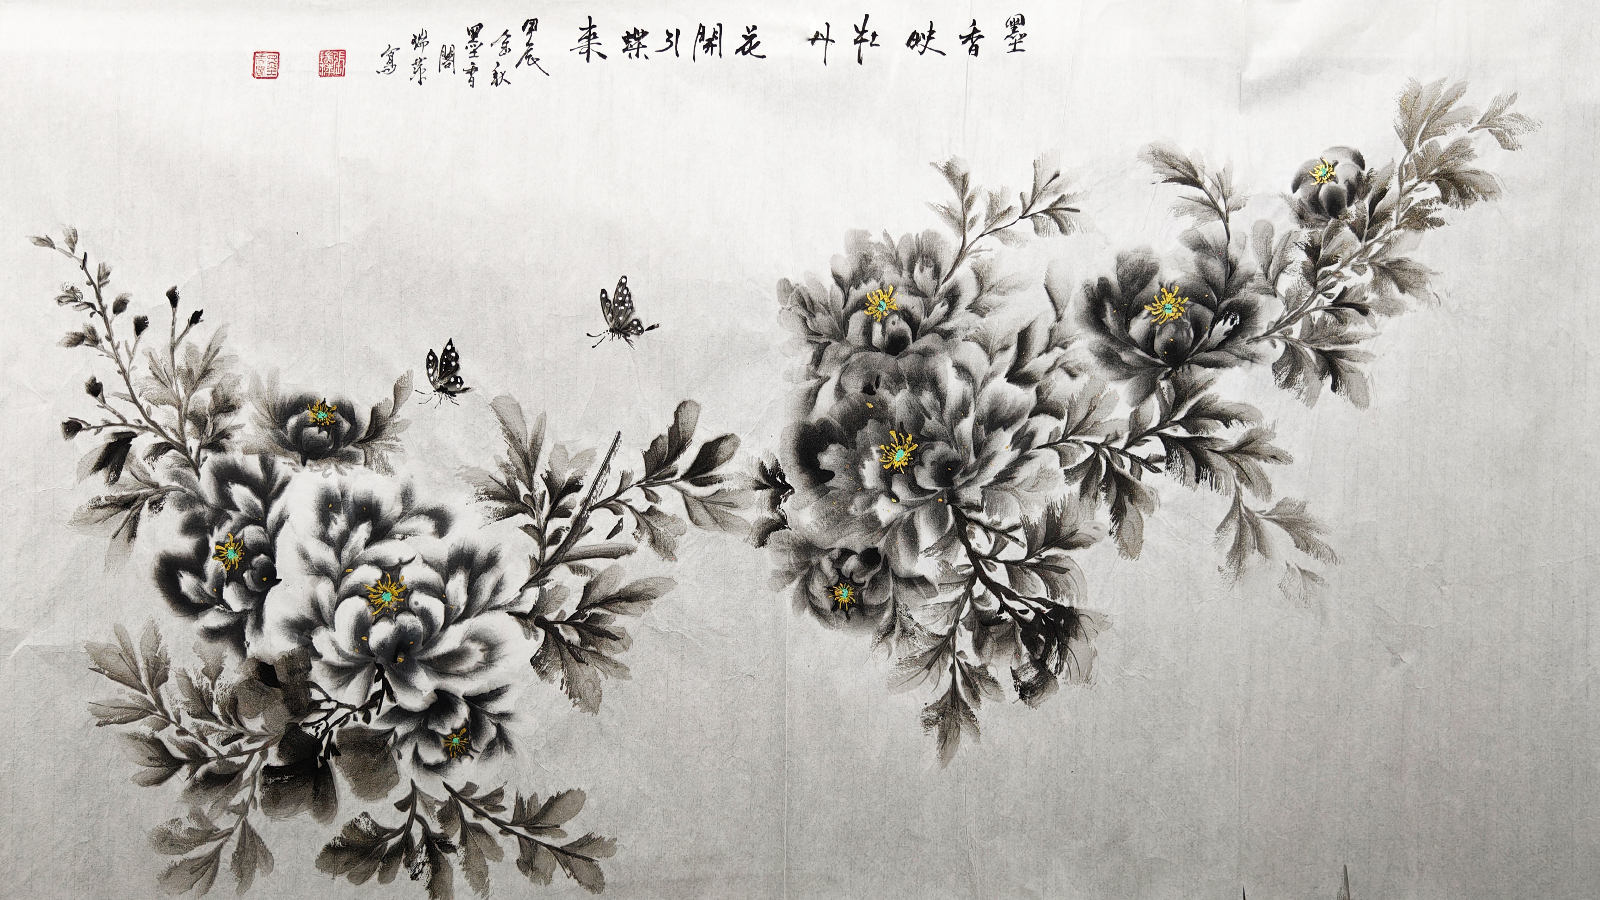 墨香映牡丹花開引蝶来
甲辰
金秋
墨香
閣
瑞萍
寫